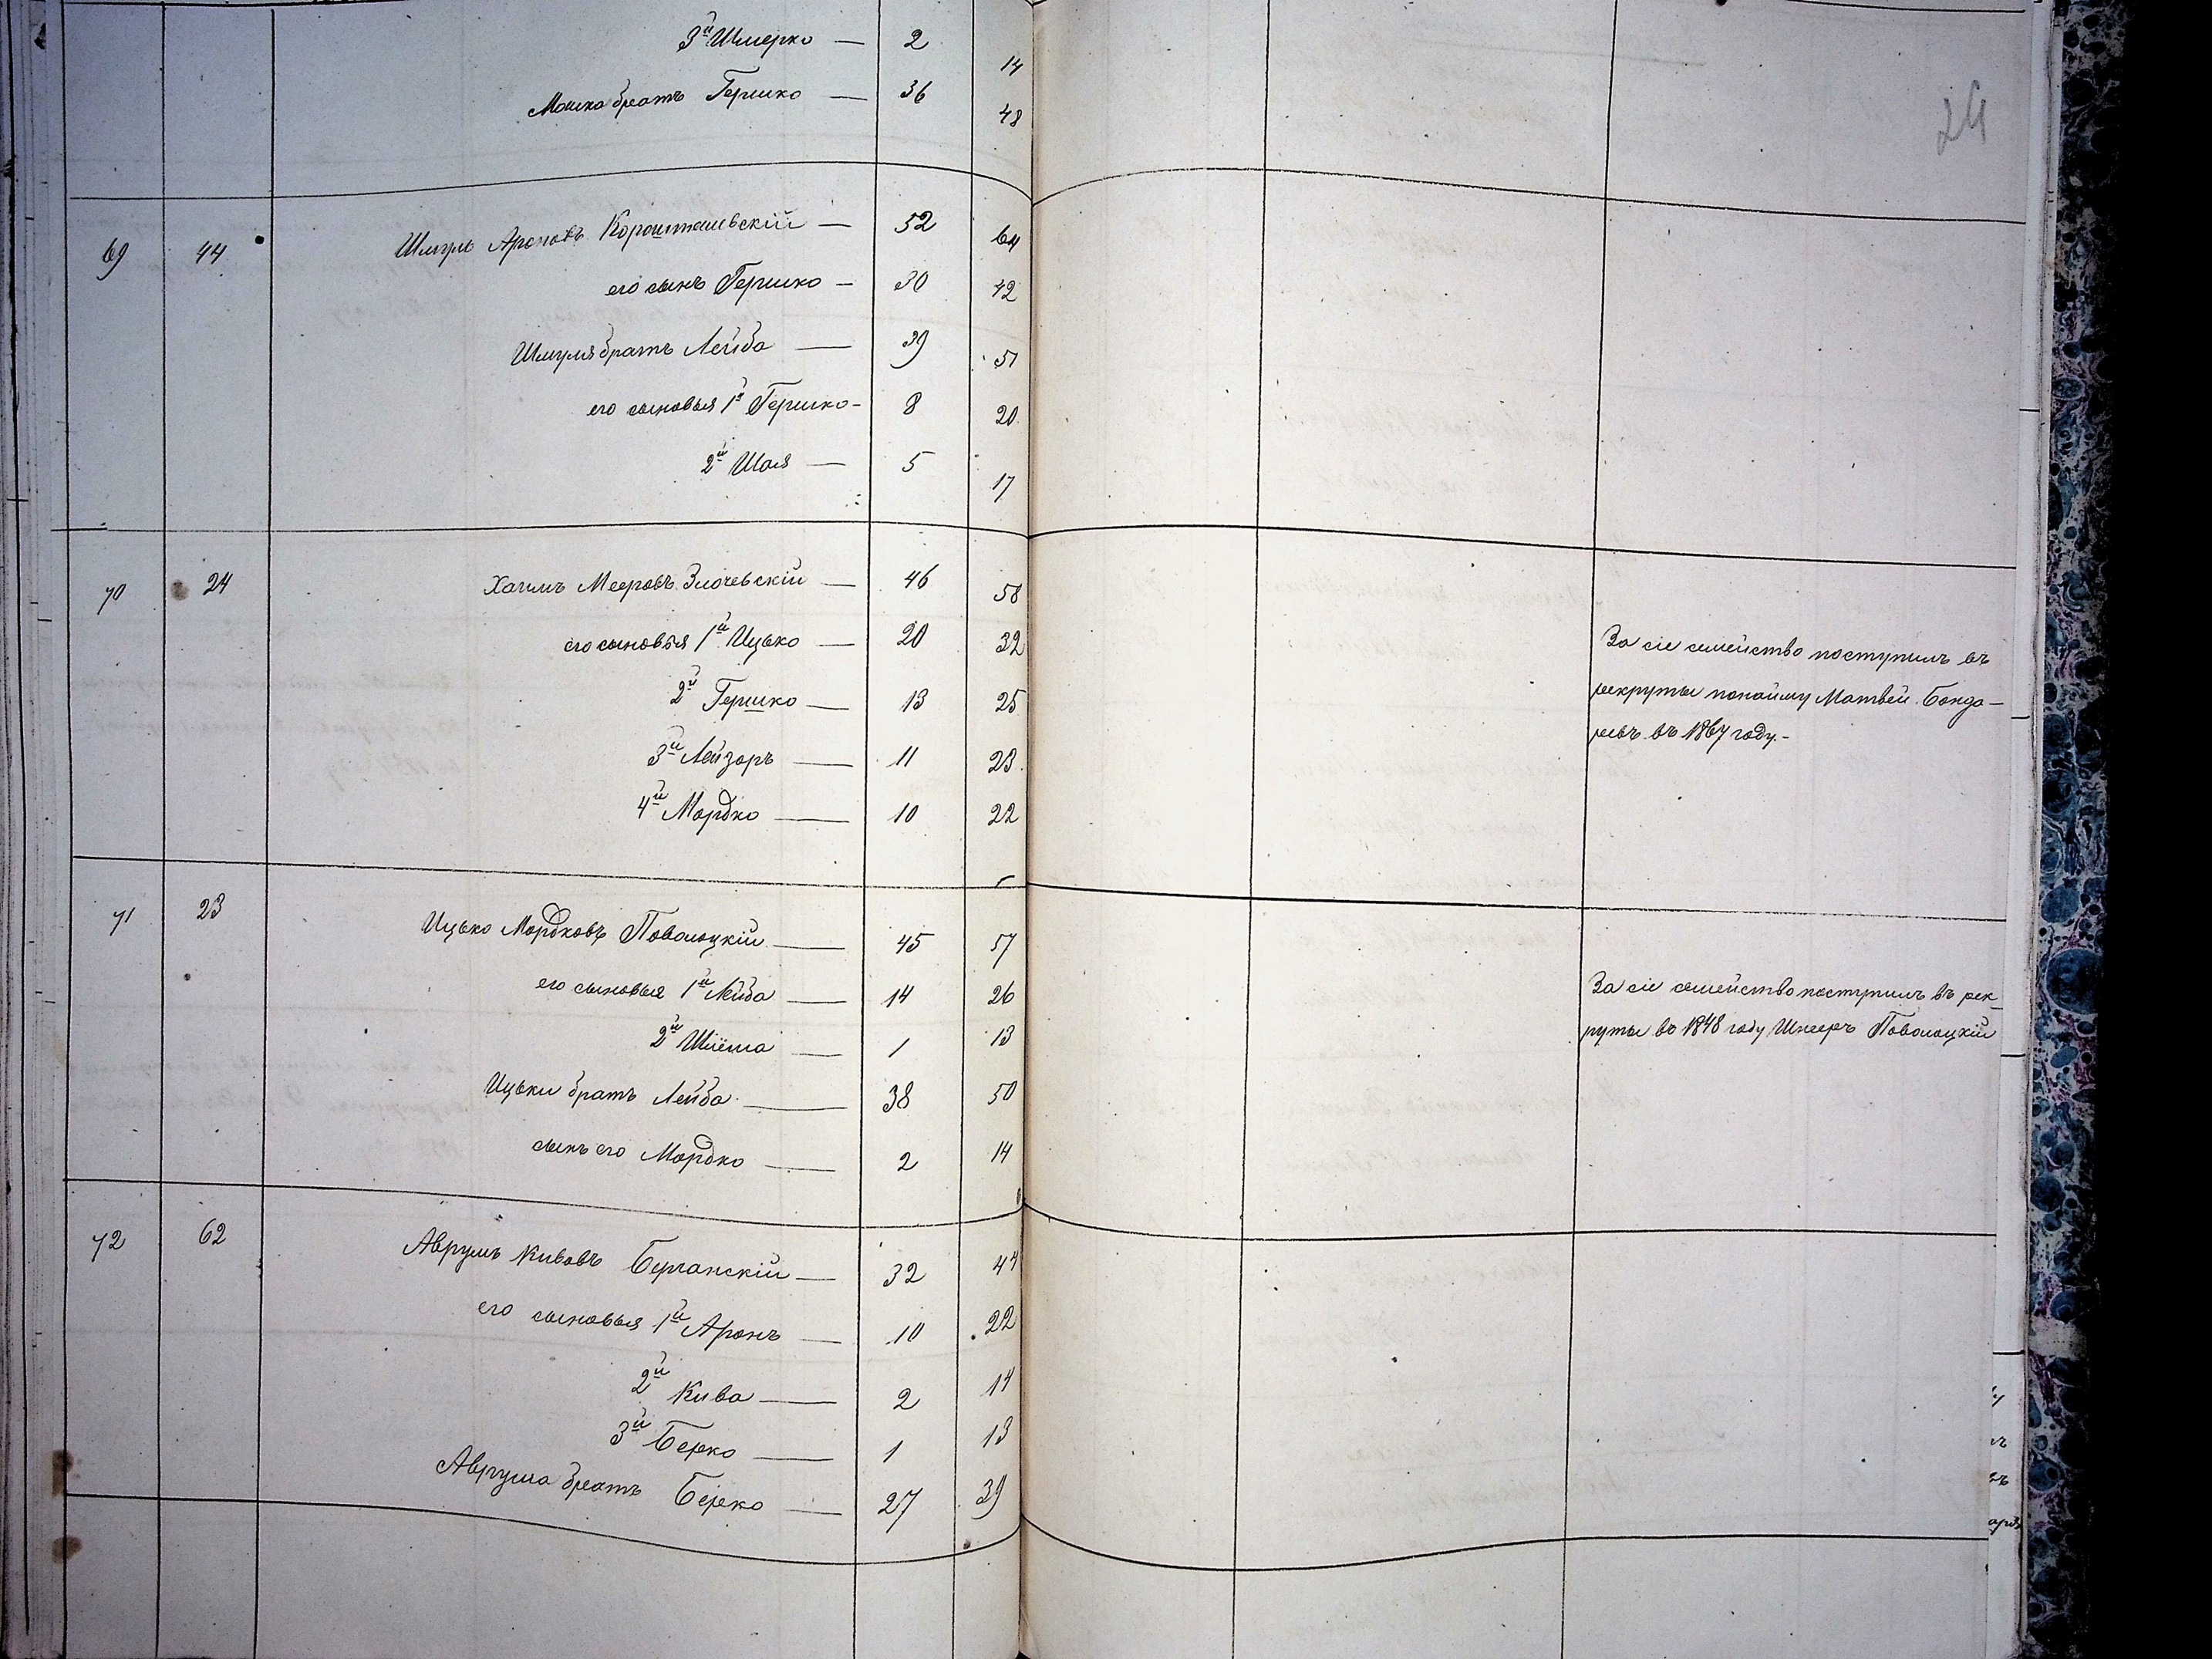 3й Шмерко — 2 14
Мошка братъ Гершко — 36 48
24
69 44 Шмуль Ароновъ Коростышевскій — 52 64
его сынъ Гершко — 30 42
Шмуля братъ Лейба — 39 51
его сыновья 1й Гершко - 8 20
2й Шая — 5 17
70 24 Хаимъ Мееровъ Злочевскій — 46 58
его сыновья 1й Ицько — 20 32
2й Гершко — 13 25
3й Лейзоръ — 11 23
4й Мордко — 10 22
За сіе семейство поступилъ въ
рекруты понайму Матвей Бонда-
ревъ въ 1867 году.-
71 23 Ицько Мордковъ Поволоцкій — 45 57
его сыновья 1й Лейба — 14 26
2й Шлёма — 1 13
Ицьки братъ Лейба — 38 50
сынъ его Мордко — 2 14
За сіе семейство поступилъ въ рек-
руты въ 1848 году Шнееръ Поволоцкій
72 62 Аврумъ Кивовъ Берганскій — 32 44
его сыновья 1й Аронъ — 10 22
2й Кива — 2 14
3й Берко — 1 13
Аврума братъ Берко — 27 39